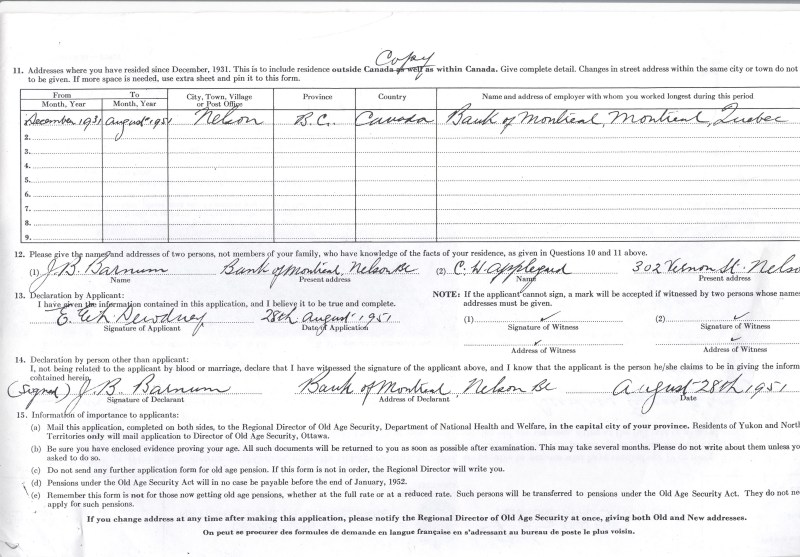 Copy
11. Addresses where you have resided since December, 1931. This is to include residence outside Canada as well as within Canada. Give complete detail. Changes in street address within the same city or town do not
to be given. If more space is needed, use extra sheet and pin it to this form.
From To City, Town, Village Province Country Name and address of employer with whom you worked longest during this period
Month, Year Month, Year or Post Office
December 1931 August 1951 Nelson B.C. Canada Bank of Montreal, Montreal, Quebec
2.
3.
4.
5.
6.
7.
8.
9.
12. Please give the names and addresses of two persons, not members of your family, who have knowledge of the facts of your residence, as given in Questions 10 and 11 above.
(1) J. B. Barnum Bank of Montreal, Nelson BC (2) C. H. Applegard 302 Vernon St. Nelso
Name Present address Name Present address
13. Declaration by Applicant:
I have given the information contained in this application, and I believe it to be true and complete.
E. Dewdney 28th August 1951
Signature of Applicant Date of Application
NOTE: If the applicant cannot sign, a mark will be accepted if witnessed by two persons whose names
addresses must be given.
(1) ✓ (2) ✓
Signature of Witness Signature of Witness
✓ ✓
Address of Witness Address of Witness
14. Declaration by person other than applicant:
I, not being related to the applicant by blood or marriage, declare that I have witnessed the signature of the applicant above, and I know that the applicant is the person he/she claims to be in giving the inform
contained herein.
(Signed) J. B. Barnum Bank of Montreal, Nelson BC August 28th 1951
Signature of Declarant Address of Declarant Date
15. Information of importance to applicants:
(a) Mail this application, completed on both sides, to the Regional Director of Old Age Security, Department of National Health and Welfare, in the capital city of your province. Residents of Yukon and North
Territories only will mail application to Director of Old Age Security, Ottawa.
(b) Be sure you have enclosed evidence proving your age. All such documents will be returned to you as soon as possible after examination. This may take several months. Please do not write about them unless yo
asked to do so.
(c) Do not send any further application form for old age pension. If this form is not in order, the Regional Director will write you.
(d) Pensions under the Old Age Security Act will in no case be payable before the end of January, 1952.
(e) Remember this form is not for those now getting old age pensions, whether at the full rate or at a reduced rate. Such persons will be transferred to pensions under the Old Age Security Act. They do not nee
apply for such pensions.
If you change address at any time after making this application, please notify the Regional Director of Old Age Security at once, giving both Old and New addresses.
On peut se procurer des formules de demande en langue française en s'adressant au bureau de poste le plus voisin.